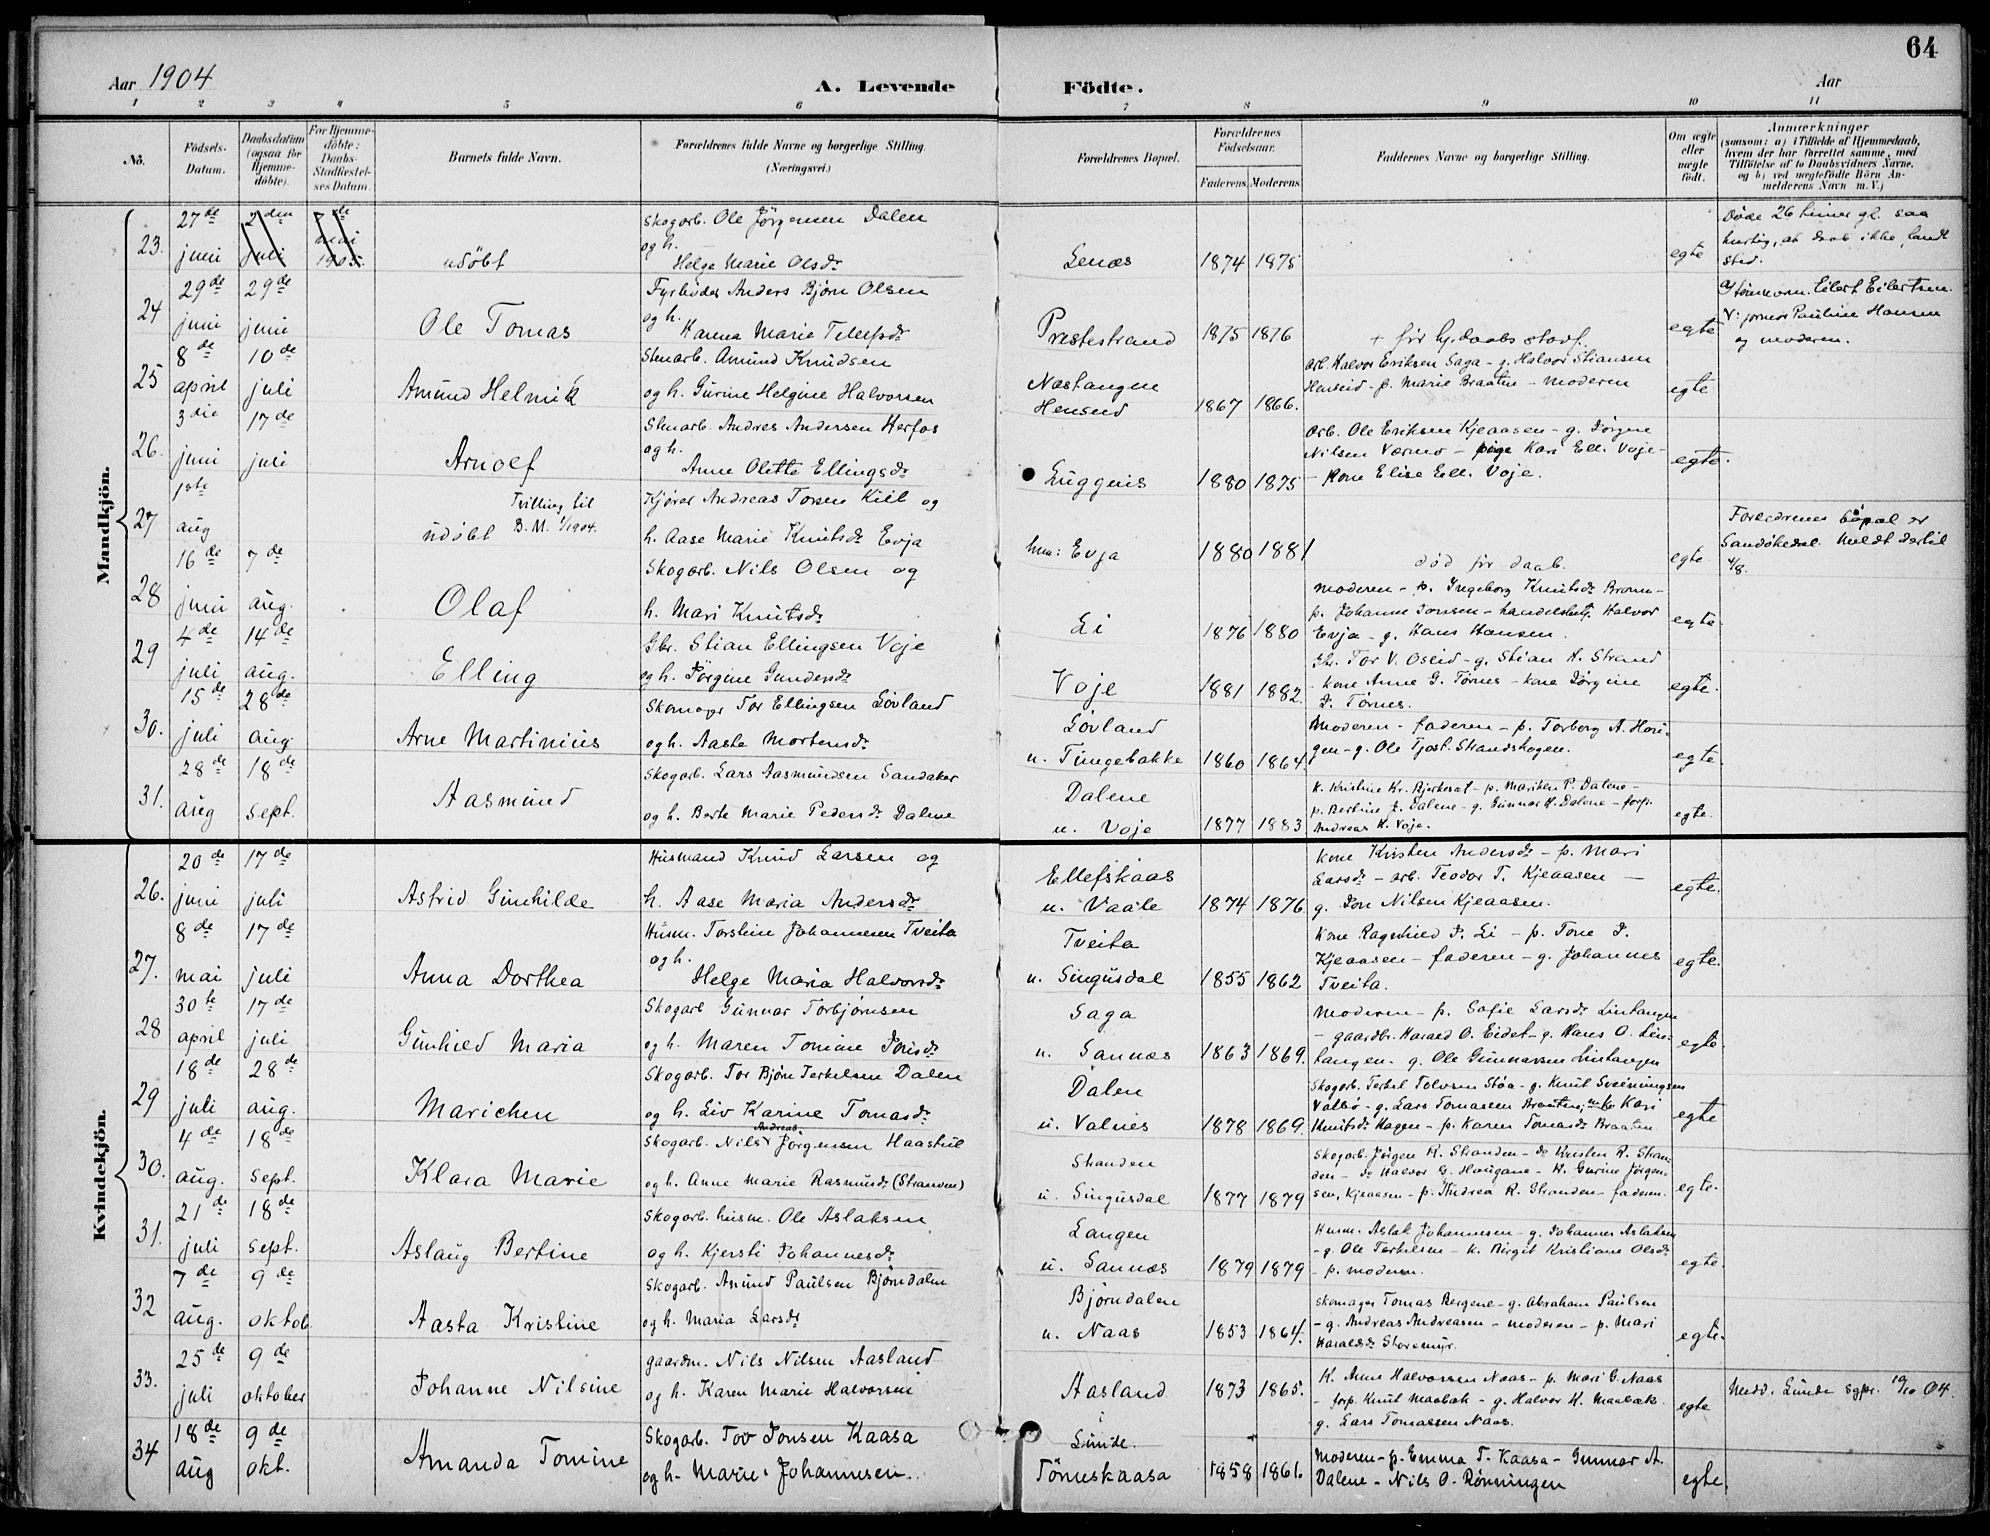 64
Aar 1904
A. Levende
Födte.
Aar
1 2 3 4 5 6 7 8 9 10 11
No.
Födsels-Datum.
Daabsdatum (ogsaa for Hjemme-döbte).
For Hjemme-döbte: Daabs-Stadfæstel-ses Datum.
Barnets fulde Navn.
Forældrenes fulde Navne og borgerlige Stilling.
(Næringsvei.)
Forældrenes Bopæl.
Forældrenes Födselsaar.
Faderens. Moderens.
Faddernes Navne og borgerlige Stilling.
Om ægte eller uægte födt.
Anmærkninger
(saasom: a) i Tilfælde af Hjemmedaab, hvem der har forrettet samme, med Tilföielse af to Daabsvidners Navne, og b) ved uægtefödte Börn An-melderens Navn m. V.)
Mandkjön.
23. 27de juni 2den juli 7de mai 1905. udöbt
Skogarb. Ole Jörgensen Dalen
og h. Helge Marie Olsdr
Lenæs 1874 1875 egte
Döde 26 timer gl. saa
hurtig, at daab ikke fandt
sted.
24 29de juni 29de juni Ole Tomas
Fyrböder Anders Björn Olsen
og h. Hanna Marie Tellefsdr
Prestestrand 1875 1876 + för hj.daabs stadf. egte
Eilert Eilertsen.
Pauline Hansen
og moderen.
25 8de april 10de juli Amund Helmik
Stenarb. Amund Knudsen
og h. Gurine Helgine Halvorsen
Næstangen
Henseid 1867 1866.
arb. Halvor Eriksen Saga - g. Halvor Stiansen
Henseid - p. Marie Braaten - moderen
egte
26. 3die juni 17de juli Arnolf
Stenarb. Andres Andersen Herfos
og h. Anne Olette Ellingsdr
Luggens 1880 1875
Arb. Ole Eriksen Kjeaasen - g. Jörgen
Nilsen Værmo - pige Kari Ell. Voje -
- Kone Elise Ell. Voje.
egte.
27 1ste aug udöbt Tvilling til
B. M. 1/1904.
Kjörer Andreas Torsen Kiil og
h. Aase Marie Knutsdr Evja
hm: Evja 1880 1881 död för daab. egte
Forældrenes bopæl er
Sandökedal. Meldt dertil
4/8.
28 16de juni 7de aug. Olaf
Skogarb. Nils Olsen og
h. Mari Knutsdr
Li 1876 1880
Moderen - p. Ingeborg Knutsdr
p. Johanne Jonsen - Halvor
Evja - g. Hans Hansen.
egte
29 4de juli 14de aug. Elling
Gbr. Stian Ellingsen Voje
og h. Jörgine Gundersdr
Voje 1881 1882
Gbr. Tor V. Oseid - g. Stian A. Strand
- kone Anne G. Törnes - kone Jörgine
J. Törnes.
egte.
30. 15de juli 28de aug Arne Martinius
Skomager Tor Ellingsen Lövland
og h. Aaste Mortensdr
Lövland
u. Tungebakke 1860 1864
Moderen - faderen - p. Torborg A. Hori-
gen - g. Ole Tjost. Strandskogen.
egte.
31. 28de aug 18de sept. Aasmund
Skogarb. Lars Aasmundsen Sandaker
og h. Berte Marie Pedersdr Dalene
Dalene
u. Voje 1877 1883
K. Kristine Kr. - p. Mariken P. Dalene -
p. Bertine J. Dalene - g. Gunnar H. Dalene - forp.
Andreas K. Voje.
egte.
Kvindekjön.
26. 20de juni 17de juli Astrid Gunhilde
Husmand Knud Larsen og
h. Aase Maria Andersdr
Ellefskaas
u. Vaale 1874 1876
Kone Kristen Andersdr - p. Mari
Larsdr - arb. Teodor T. Kjeaasen -
g. Jon Nilsen Kjeaasen.
egte.
27. 8de mai 17de juli Anna Dorthea
Husm. Torstein Johannesen Tveita
og h. Helge Maria Halvorsdr
Tveita
u. Singusdal 1855 1862
Kone Ragnhild J. Li - p. Tone J.
Kjeaasen - faderen - g. Johannes
Tveita.
egte.
28 30te april 17de juli Gunhild Maria
Skogarb Gunnar Torbjörnsen
og h. Maren Tomine Jonsdr
Saga
u. Sannæs 1863 1869.
Moderen - p. Sofie Larsdr Lintangen
- gaardbr. Harald O. Eidet - g. Hans O. Lin-
tangen - g. Ole Gunnarsen Lintangen
egte
29 18de juli 28de aug. Marichen
Skogarb. Tor Björn Terkelsen Dalen
og h. Liv Karine Tomasdr
Dalen
u. Valnes 1878 1869
Skogarb. Terkel Tolvsen Stöa - g. Knut Sveinungsen
Valbö - g. Lars Tomassen Braaten - Kari
Knutsdr Hagen - p. Karen Tomasdr Braaten
egte
30. 4de aug. 18de sept. Klara Marie
Skogarb. Nils Andreas Jörgensen Haastul
og h. Anne Marie Rasmusdr (Stranden)
Stranden
u. Singusdal 1877 1879
Skogarb. Jörgen R. Stranden - do Kristen R. Stran-
den - do Halvor G. Haugane - K. Gurine Jörgen-
sen, Kjeaasen - p. Andrea R. Stranden - faderen.
egte.
31. 21de juli 18de sept. Aslaug Bertine
Skogarb. husm. Ole Aslaksen
og h. Kjersti Johannesdr
Langen
u. Sannæs 1879 1879
Husm. Aslak Johannesen - g. Johannes Aslaksen
- g. Ole Terkelsen - K. Birgit Kristiane Olsdr
- p. moderen.
egte.
32 7de aug. 9de oktob. Aasta Kristine
Skogarb. Amund Paulsen Björndalen
og h. Maria Larsdr
Björndalen
u. Naas 1853 1864.
Skomager Tomas Bergene - g. Abraham Paulsen
- g. Andreas Andreasen - moderen - p. Mari
Haraldsdr Storemyr.
egte.
33. 25de juli 9de oktober Johanne Nilsine
gaardm. Nils Nilsen Aasland
og h. Karen Marie Halvorsen
Aasland
i
Lunde. 1873 1865.
K. Anne Halvorsen Naas - p. Mari G. Naas
- forp. Knut Maabæk - g. Halvor K. Maabæk
g. Lars Tomassen Naas.
egte
Medd. Lunde sgpr. 19/10 04.
34 18de aug 9de okt. Amanda Tomine
Skogarb. Tov Jonsen Kaasa
og h. Marie Johannesen.
Törneskaasa 1858 1861.
Moderen - p. Emma T. Kaasa - Gunnar A.
Dalene - Nils O. Rönningen
egte.